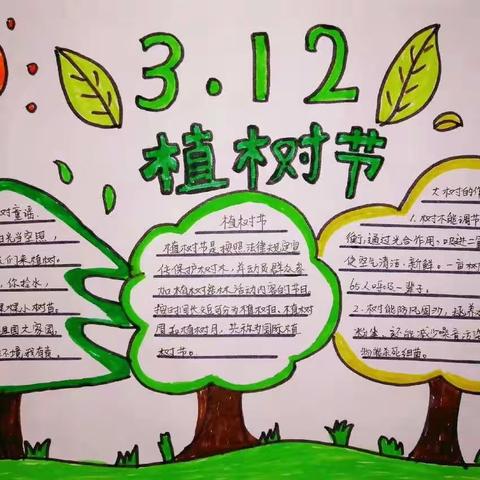 3.12
植树节
树童谣
阳光当空照，
们来植树。
，你捡水，
棵棵小树苗，
祖国大家园，
环境，我有责。
植树节
植树节是按照法律规定宣
传保护树木，并动员群众参
加植树造林活动内容的节日，
按时间长短可分为植树日、植树
周和植树月，共称为国际植
树节。
大树的作
1. 树木能调节
衡，通过光合作用，吸进二
使空气清洁、新鲜。一亩树
65人呼吸一辈子。
2. 树能防风固沙，
粉尘，还能减少噪音污染
物能杀死细菌。